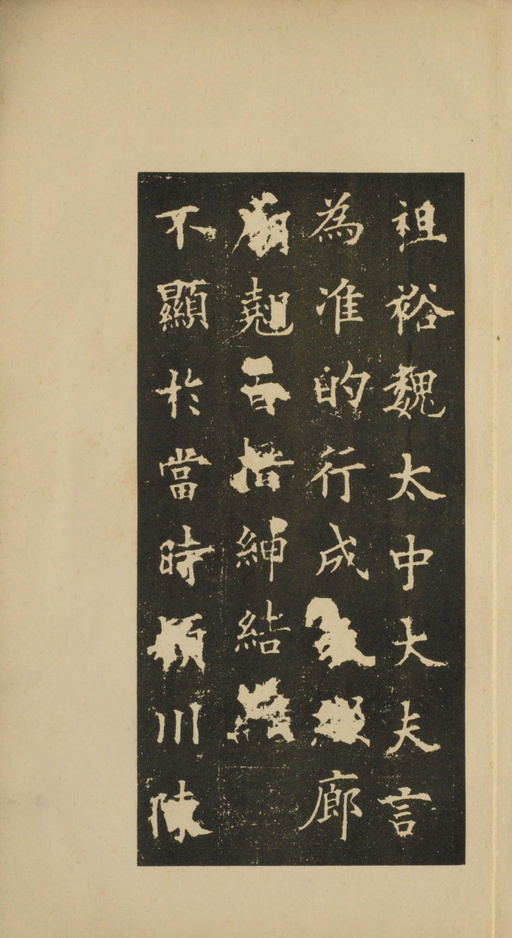 祖裕魏太中大夫言
為准的行成綴廊
廟紳結
不顯於當時潁川陳